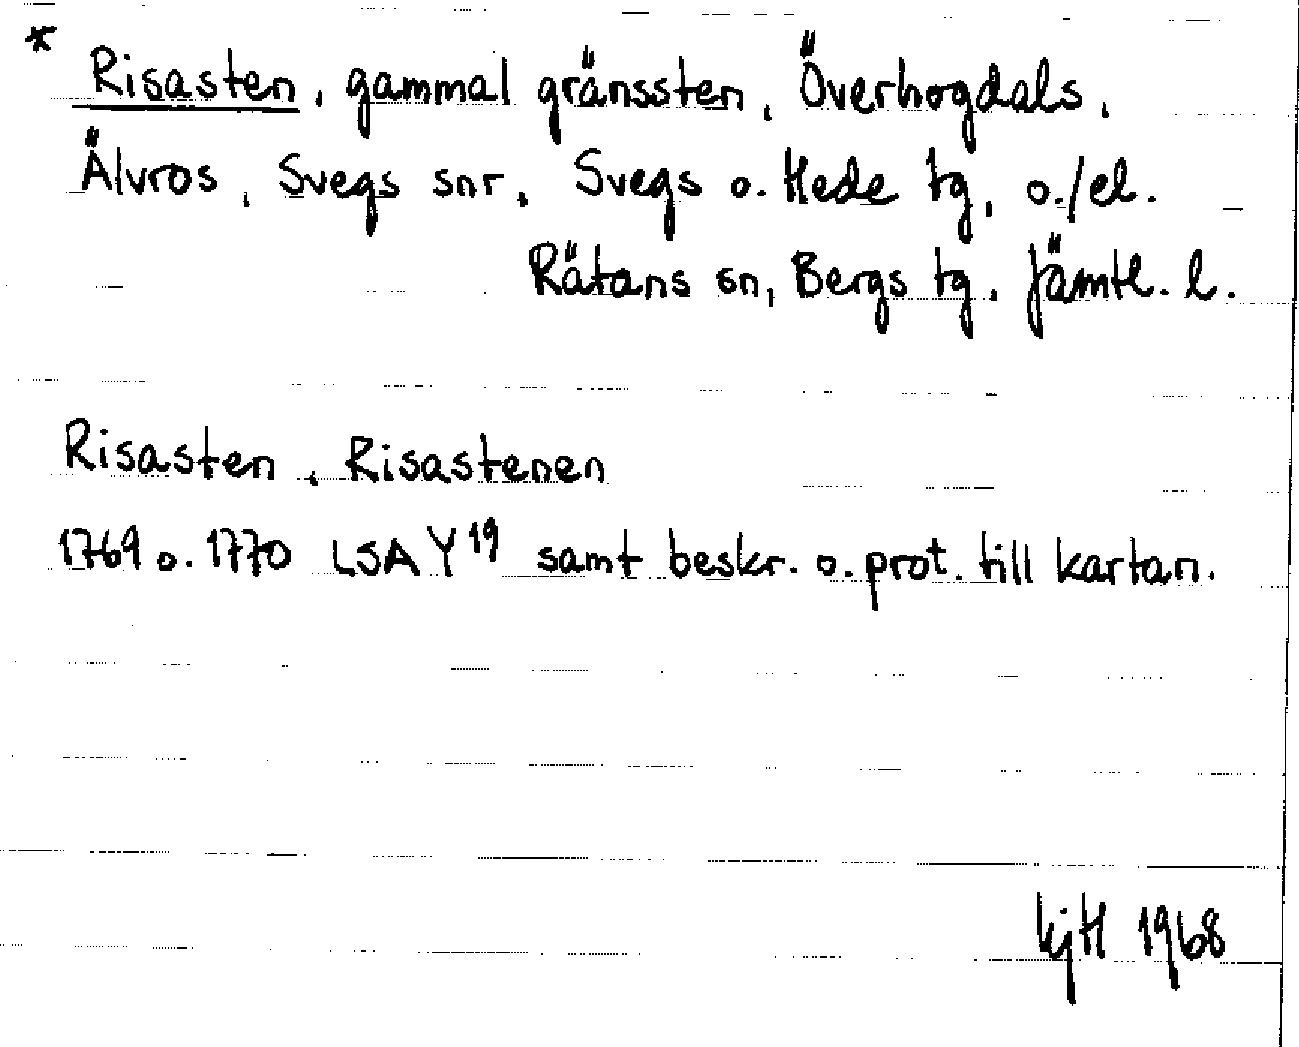 * Risasten, gammal gränssten, Överhogdals,
Älvros, Svegs snr, Svegs o. Hede tg, o./el.
Rätans sn, Bergs tg, Jämtl. l.
Risasten, Risastenen
1769 o. 1770 LSA Y19 samt beskr. o. prot. till kartan.
kjH 1968